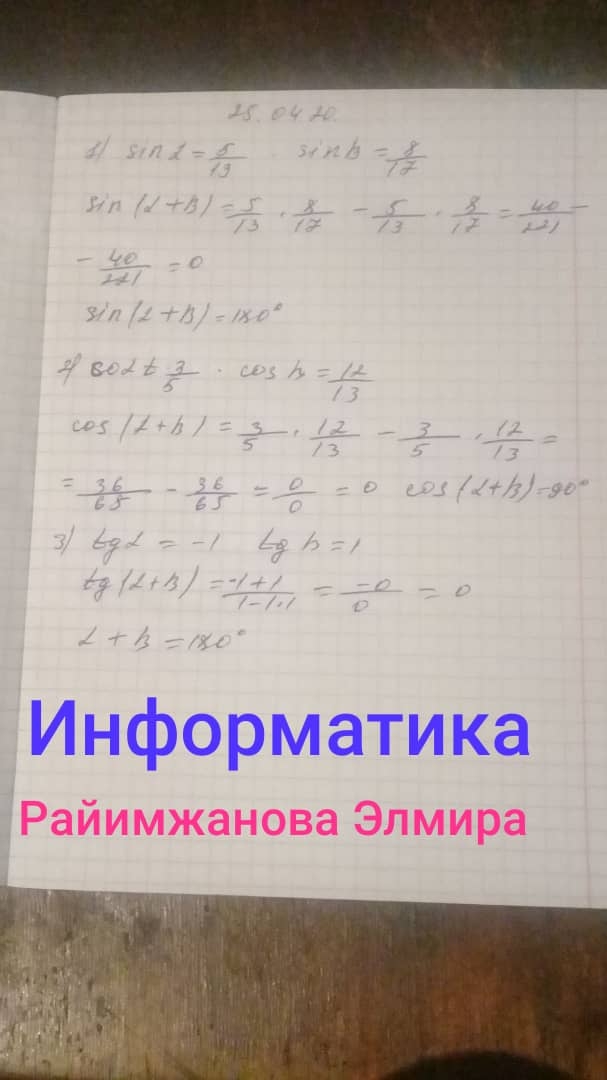 25.04.20.
1) sin α = 5/13 · sin β = 8/17
sin (α + β) = 5/13 · 8/17 - 5/13 · 8/17 = 40/221 -
- 40/221 = 0
sin (α + β) = 180°
3/5 · cos β = 12/13
cos (α + β) = 3/5 · 12/13 - 3/5 · 12/13 =
= 36/65 - 36/65 = 0/0 = 0 cos (α + β) = 90°
3) tg α = -1 tg β = 1
tg (α + β) = -1+1/1-1·1 = -0/0 = 0
α + β = 180°
Информатика
Райимжанова Элмира